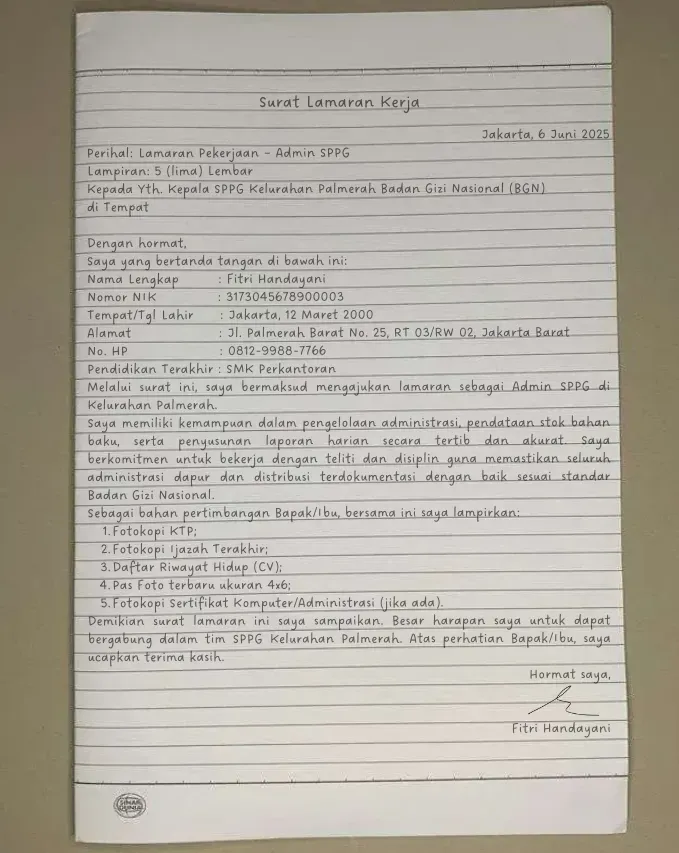 Surat Lamaran Kerja
Jakarta, 6 Juni 2025
Perihal: Lamaran Pekerjaan - Admin SPPG
Lampiran: 5 (lima) Lembar
Kepada Yth. Kepala SPPG Kelurahan Palmerah Badan Gizi Nasional (BGN)
di Tempat
Dengan hormat,
Saya yang bertanda tangan di bawah ini:
Nama Lengkap : Fitri Handayani
Nomor NIK : 3173045678900003
Tempat/Tgl Lahir : Jakarta, 12 Maret 2000
Alamat : Jl. Palmerah Barat No. 25, RT 03/RW 02, Jakarta Barat
No. HP : 0812-9988-7766
Pendidikan Terakhir : SMK Perkantoran
Melalui surat ini, saya bermaksud mengajukan lamaran sebagai Admin SPPG di
Kelurahan Palmerah.
Saya memiliki kemampuan dalam pengelolaan administrasi, pendataan stok bahan
baku, serta penyusunan laporan harian secara tertib dan akurat. Saya
berkomitmen untuk bekerja dengan teliti dan disiplin guna memastikan seluruh
administrasi dapur dan distribusi terdokumentasi dengan baik sesuai standar
Badan Gizi Nasional.
Sebagai bahan pertimbangan Bapak/Ibu, bersama ini saya lampirkan:
1. Fotokopi KTP;
2. Fotokopi Ijazah Terakhir;
3. Daftar Riwayat Hidup (CV);
4. Pas Foto terbaru ukuran 4x6;
5. Fotokopi Sertifikat Komputer/Administrasi (jika ada).
Demikian surat lamaran ini saya sampaikan. Besar harapan saya untuk dapat
bergabung dalam tim SPPG Kelurahan Palmerah. Atas perhatian Bapak/Ibu, saya
ucapkan terima kasih.
Hormat saya,
Fitri Handayani
SINAR
DUNIA